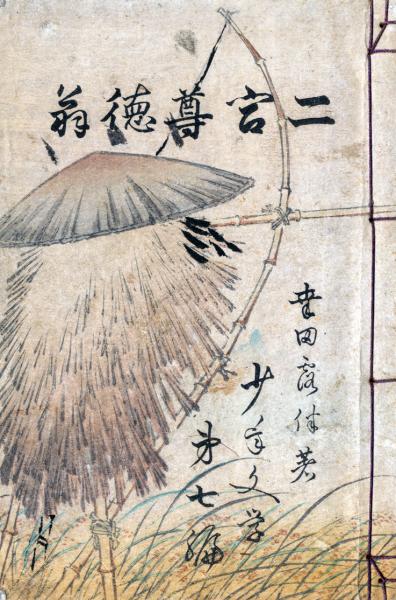 二宮尊德翁
幸田露伴著
少年文学
第七編